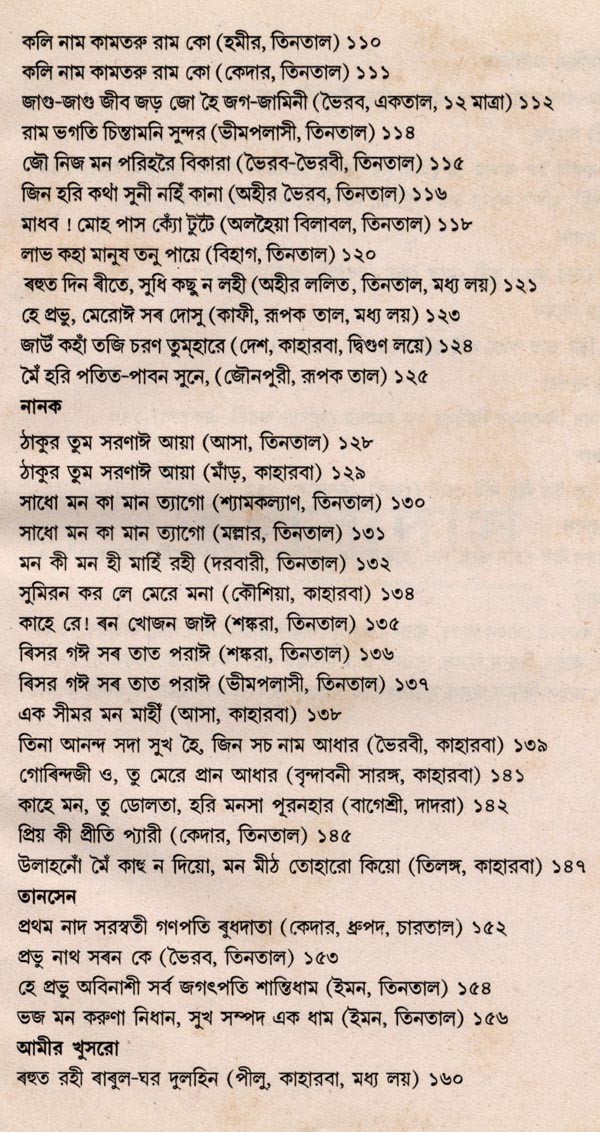 কলি নাম কামতরু রাম কো (হমীর, তিনতাল) ১১০
কলি নাম কামতরু রাম কো (কেদার, তিনতাল) ১১১
জাগু-জাগু জীব জড় জো হৈ জগ-জামিনী (ভৈরব, একতাল, ১২ মাত্রা) ১১২
রাম ভগতি চিন্তামনি সুন্দর (ভীমপলাসী, তিনতাল) ১১৪
জৌ নিজ মন পরিহরৈ বিকারা (ভৈরব-ভৈরবী, তিনতাল) ১১৫
জিন হরি কথাঁ সুনী নহিঁ কানা (অহীর ভৈরব, তিনতাল) ১১৬
মাধব ! মোহ পাস ক্যোঁ টুটৈ (অলহৈয়া বিলাবল, তিনতাল) ১১৮
লাভ কহা মানুষ তনু পায়ে (বিহাগ, তিনতাল) ১২০
ৰহুত দিন ৰীতে, সুধি কছু ন লহী (অহীর ললিত, তিনতাল, মধ্য লয়) ১২১
হে প্রভু, মেরোঈ সৰ দোসু (কাফী, রূপক তাল, মধ্য লয়) ১২৩
জাউঁ কহাঁ তজি চরণ তুম্হারে (দেশ, কাহারবা, দ্বিগুণ লয়ে) ১২৪
মৈঁ হরি পতিত-পাবন সুনে, (জৌনপুরী, রূপক তাল) ১২৫
নানক
ঠাকুর তুম সরণাঈ আয়া (আসা, তিনতাল) ১২৮
ঠাকুর তুম সরণাঈ আয়া (মাঁড়, কাহারবা) ১২৯
সাধো মন কা মান ত্যাগো (শ্যামকল্যাণ, তিনতাল) ১৩০
সাধো মন কা মান ত্যাগো (মল্লার, তিনতাল) ১৩১
মন কী মন হী মাহিঁ রহী (দরবারী, তিনতাল) ১৩২
সুমিরন কর লে মেরে মনা (কৌশিয়া, কাহারবা) ১৩৪
কাহে রে! ৰন খোজন জাঈ (শঙ্করা, তিনতাল) ১৩৫
ৰিসর গঈ সৰ তাত পরাঈ (শঙ্করা, তিনতাল) ১৩৬
ৰিসর গঈ সৰ তাত পরাঈ (ভীমপলাসী, তিনতাল) ১৩৭
এক সীমর মন মাহীঁ (আসা, কাহারবা) ১৩৮
তিনা আনন্দ সদা সুখ হৈ, জিন সচ নাম আধার (ভৈরবী, কাহারবা) ১৩৯
গোৰিন্দজী ও, তু মেরে প্রান আধার (বৃন্দাবনী সারঙ্গ, কাহারবা) ১৪১
কাহে মন, তু ডোলতা, হরি মনসা পূরনহার (বাগেশ্রী, দাদরা) ১৪২
প্রিয় কী প্রীতি প্যারী (কেদার, তিনতাল) ১৪৫
উলাহনোঁ মৈঁ কাহু ন দিয়ো, মন মীঠ তোহারো কিয়ো (তিলঙ্গ, কাহারবা) ১৪৭
তানসেন
প্রথম নাদ সরস্বতী গণপতি ৰুধদাতা (কেদার, ধ্রুপদ, চারতাল) ১৫২
প্রভু নাথ সৰন কে (ভৈরব, তিনতাল) ১৫৩
হে প্রভু অবিনাশী সর্ব জগৎপতি শান্তিধাম (ইমন, তিনতাল) ১৫৪
ভজ মন করুণা নিধান, সুখ সম্পদ এক ধাম (ইমন, তিনতাল) ১৫৬
আমীর খুসরো
ৰহুত রহী ৰাৰুল-ঘর দুলহিন (পীলু, কাহারবা, মধ্য লয়) ১৬০